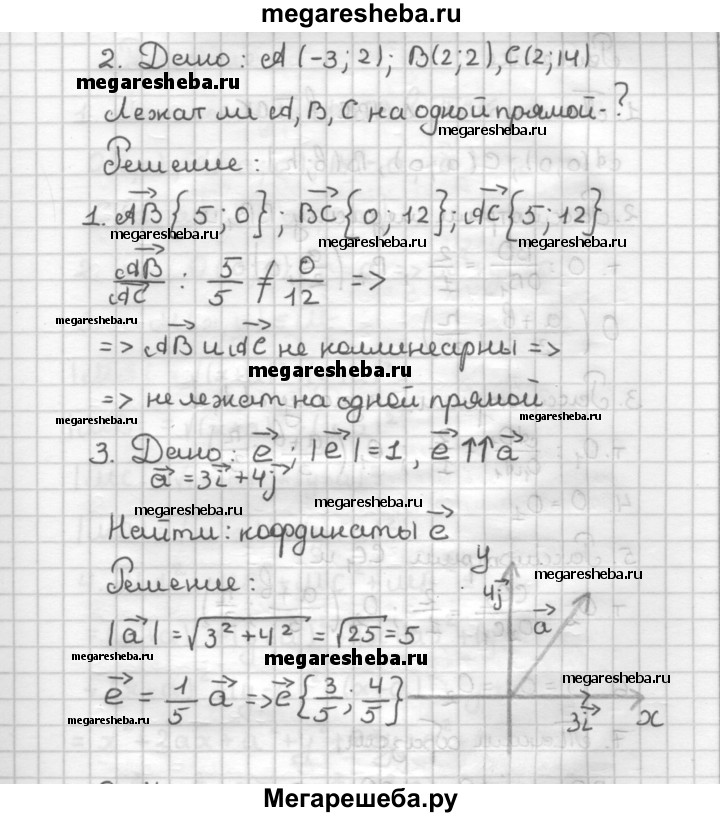 megaresheba.ru
2. Дано: A (-3; 2); B(2; 2), C(2; 14)
megaresheba.ru
Лежат ли A, B, C на одной прямой-?
megaresheba.ru
Решение:
1. AB⃗ {5; 0}; BC⃗ {0; 12}; AC⃗ {5; 12}
megaresheba.ru megaresheba.ru megaresheba.ru
AB⃗/AC⃗ : 5/5 ≠ 0/12 =>
megaresheba.ru
=> AB⃗ и AC⃗ не коллинеарны =>
megaresheba.ru
=> не лежат на одной прямой
megaresheba.ru megaresheba.ru
3. Дано: e⃗; |e⃗| = 1, e⃗ ↑↑ a⃗
a⃗ = 3i⃗ + 4j⃗
megaresheba.ru megaresheba.ru
Найти: координаты e⃗
Решение:
y
megaresheba.ru
4j⃗
a⃗
|a⃗| = √(3² + 4²) = √25 = 5
megaresheba.ru megaresheba.ru
e⃗ = 1/5 a⃗ => e⃗ {3/5; 4/5}
megaresheba.ru
megaresheba.ru
3i⃗ x
Мегарешеба.ру